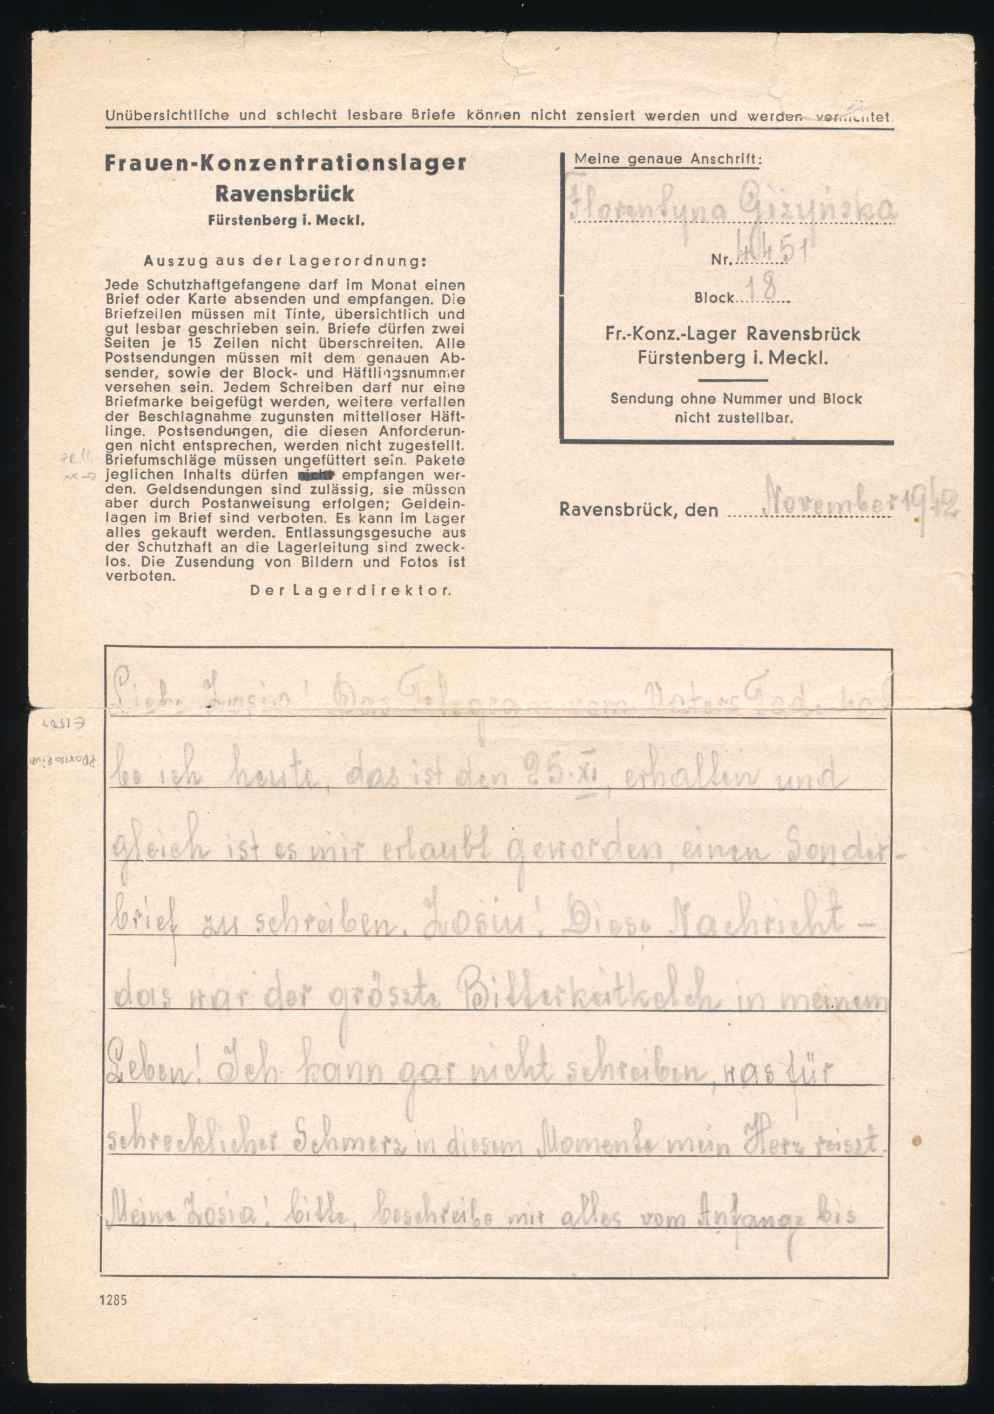 Unübersichtliche und schlecht lesbare Briefe können nicht zensiert werden und werden vernichtet.
Frauen-Konzentrationslager
Ravensbrück
Fürstenberg i. Meckl.
Auszug aus der Lagerordnung:
Jede Schutzhaftgefangene darf im Monat einen
Brief oder Karte absenden und empfangen. Die
Briefzeilen müssen mit Tinte, übersichtlich und
gut lesbar geschrieben sein. Briefe dürfen zwei
Seiten je 15 Zeilen nicht überschreiten. Alle
Postsendungen müssen mit dem genauen Ab-
sender, sowie der Block- und Häftlingsnummer
versehen sein. Jedem Schreiben darf nur eine
Briefmarke beigefügt werden, weitere verfallen
der Beschlagnahme zugunsten mittelloser Häft-
linge. Postsendungen, die diesen Anforderun-
gen nicht entsprechen, werden nicht zugestellt.
Briefumschläge müssen ungefüttert sein. Pakete
jeglichen Inhalts dürfen nicht empfangen wer-
den. Geldsendungen sind zulässig, sie müssen
aber durch Postanweisung erfolgen; Geldein-
lagen im Brief sind verboten. Es kann im Lager
alles gekauft werden. Entlassungsgesuche aus
der Schutzhaft an die Lagerleitung sind zweck-
los. Die Zusendung von Bildern und Fotos ist
verboten.
Der Lagerdirektor.
Meine genaue Anschrift:
Florentyna Giżyńska
Nr. 4451
Block 18
Fr.-Konz.-Lager Ravensbrück
Fürstenberg i. Meckl.
Sendung ohne Nummer und Block
nicht zustellbar.
Ravensbrück, den November 1942
Liebe Zosia! Das Telegram vom Vaters Tode ha-
be ich heute, das ist den 25. XI, erhallen und
gleich ist es mir erlaubt geworden, einen Sonder-
brief zu schreiben. Zosiu! Diese Nachricht –
das war der grösste Bitterkeitkelch in meinem
Leben! Ich kann gar nicht schreiben, was für
schrecklicher Schmerz in diesem Momente mein Herz reiszt.
Meine Zosia! bitte, beschreibe mir alles vom Anfange bis
1285